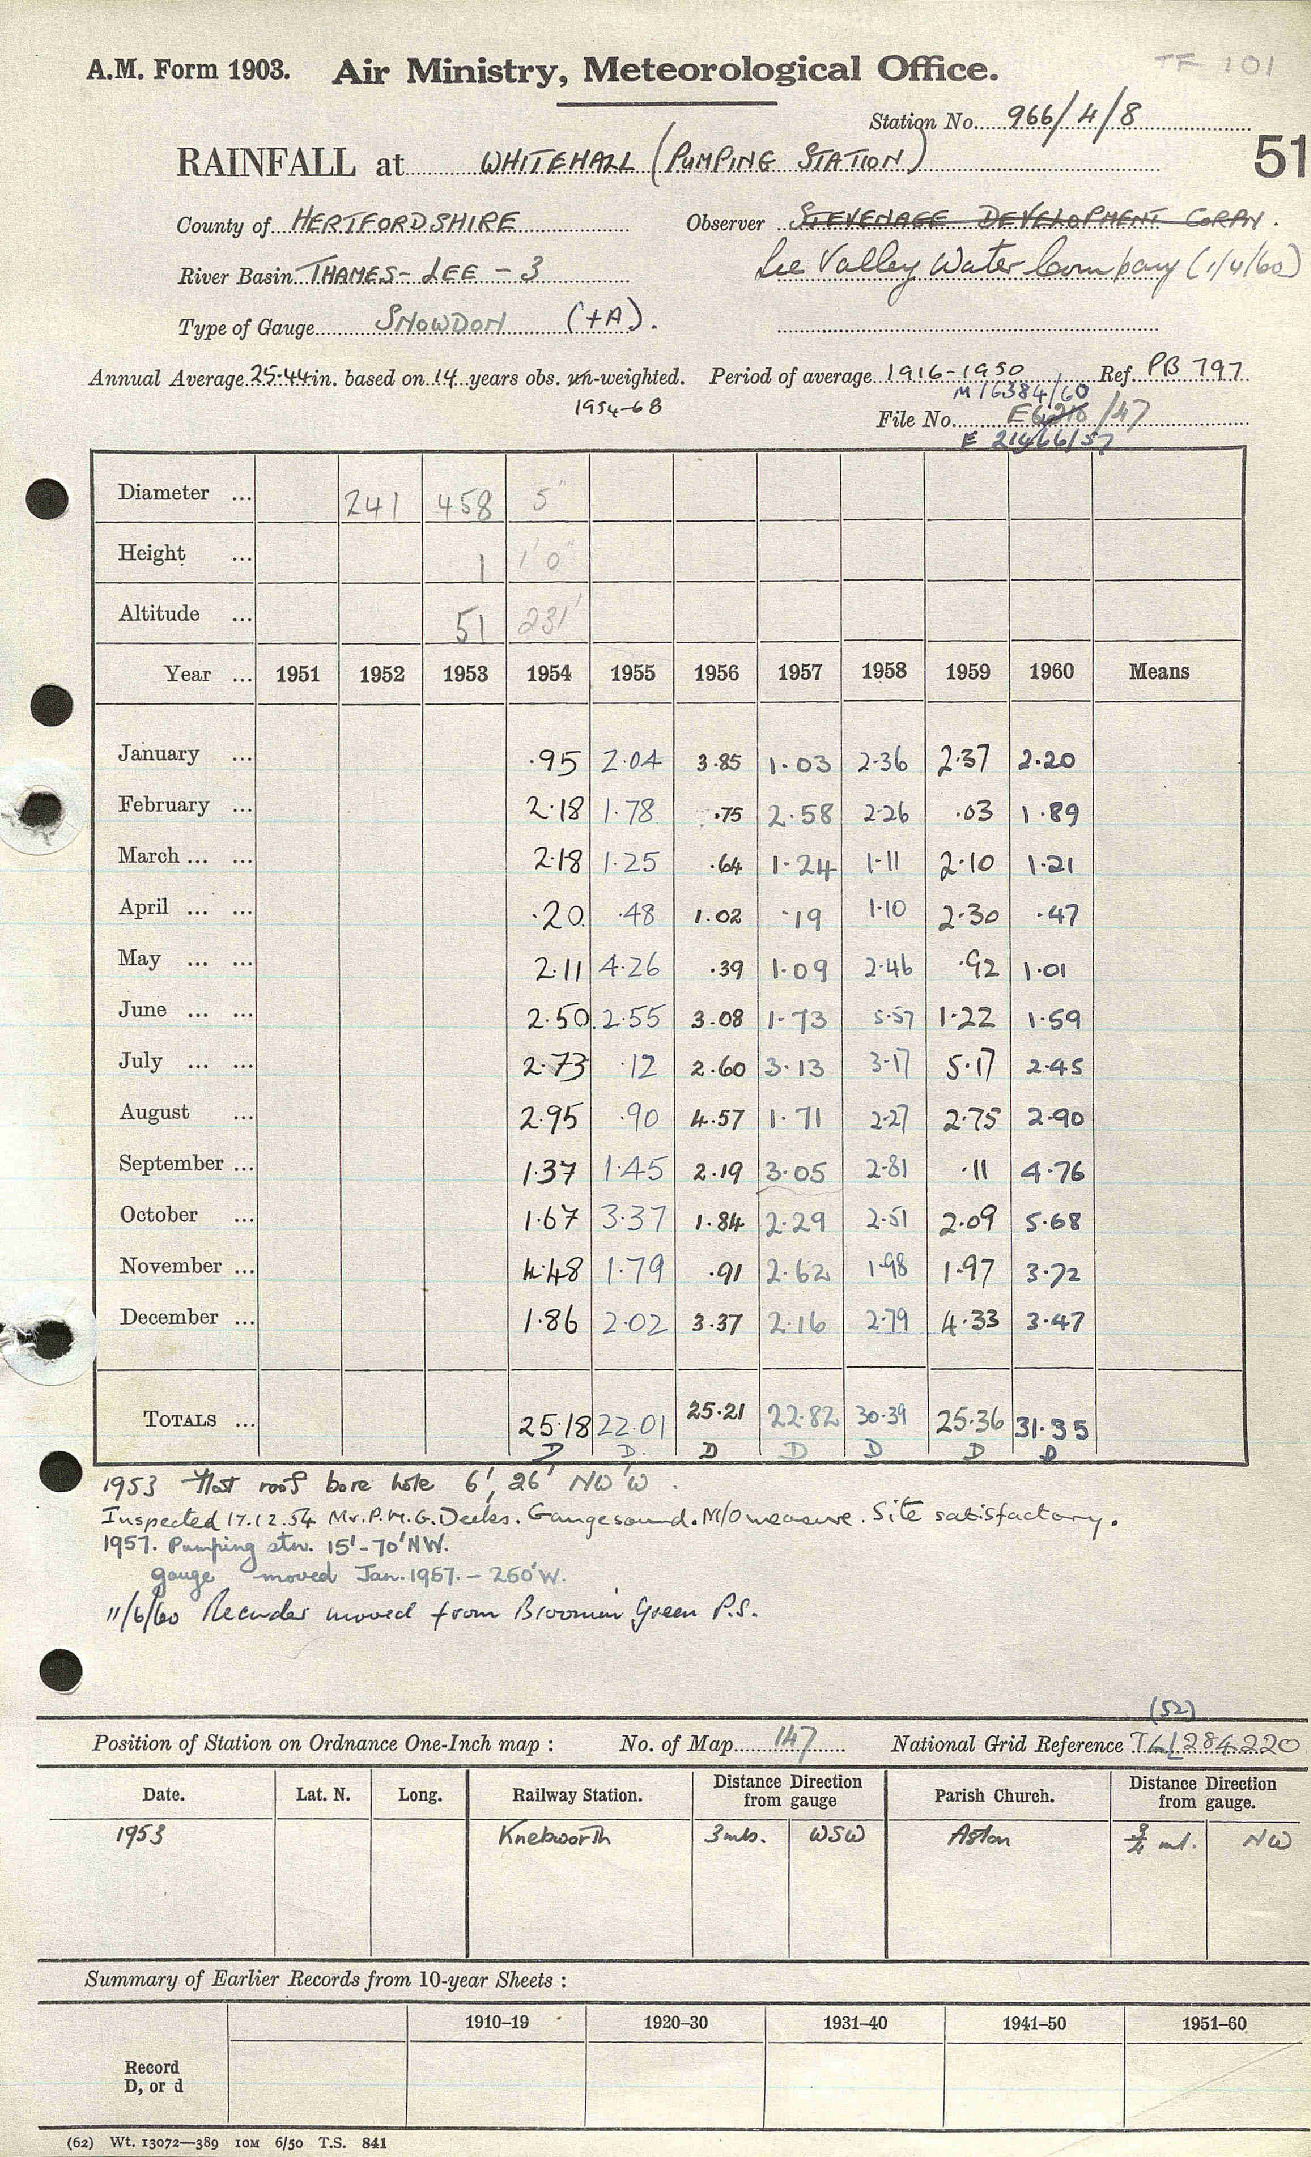 TF 101
A.M. Form 1903. Air Ministry, Meteorological Office.
Station No. 966/4/8
51
RAINFALL at WHITEHALL (PUMPING STATION)
County of HERTFORDSHIRE Observer STEVENAGE DEVELOPMENT CORPN.
River Basin THAMES-LEE-3 Lee Valley Water Company (1/4/60)
Type of Gauge SNOWDON (+A).
Annual Average 25.44 in. based on 14 years obs. un-weighted. Period of average 1916-1950 Ref. PB 797
1954-68 M16384/60
File No. /47
E 21466/57
Diameter ... 241 458 5"
Height ... 1 1'0"
Altitude ... 51 231'
Year ... 1951 1952 1953 1954 1955 1956 1957 1958 1959 1960 Means
January ... .95 2.04 3.85 1.03 2.36 2.37 2.20
February ... 2.18 1.78 .75 2.58 2.26 .03 1.89
March ... ... 2.18 1.25 .64 1.24 1.11 2.10 1.21
April ... ... .20 .48 1.02 .19 1.10 2.30 .47
May ... ... 2.11 4.26 .39 1.09 2.46 .92 1.01
June ... ... 2.50 2.55 3.08 1.73 5.57 1.22 1.59
July ... ... 2.73 .12 2.60 3.13 3.17 5.17 2.45
August ... 2.95 .90 4.57 1.71 2.27 2.75 2.90
September ... 1.37 1.45 2.19 3.05 2.81 .11 4.76
October ... 1.67 3.37 1.84 2.29 2.51 2.09 5.68
November ... 4.48 1.79 .91 2.62 1.98 1.97 3.72
December ... 1.86 2.02 3.37 2.16 2.79 4.33 3.47
TOTALS ... 25.18 22.01 25.21 22.82 30.39 25.36 31.35
D D D D D D D
1953 flat roof bore hole 6', 26' NW'W.
Inspected 17.12.54 Mr. P.M.G. Deeks. Gauge sound. M/O measure. Site satisfactory.
1957. Pumping stn. 15'-70'NW.
gauge moved Jan. 1957. - 250'W.
11/6/60 Recorder moved from Broomin Green P.S.
(52)
Position of Station on Ordnance One-Inch map : No. of Map 147 National Grid Reference TL/284220
Date. Lat. N. Long. Railway Station. Distance Direction from gauge Parish Church. Distance Direction from gauge.
1953 Knebworth 3mls. WSW Aston ¾ ml. NW
Summary of Earlier Records from 10-year Sheets :
1910–19 1920–30 1931–40 1941–50 1951–60
Record
D, or d
(62) Wt. 13072—389 10M 6/50 T.S. 841